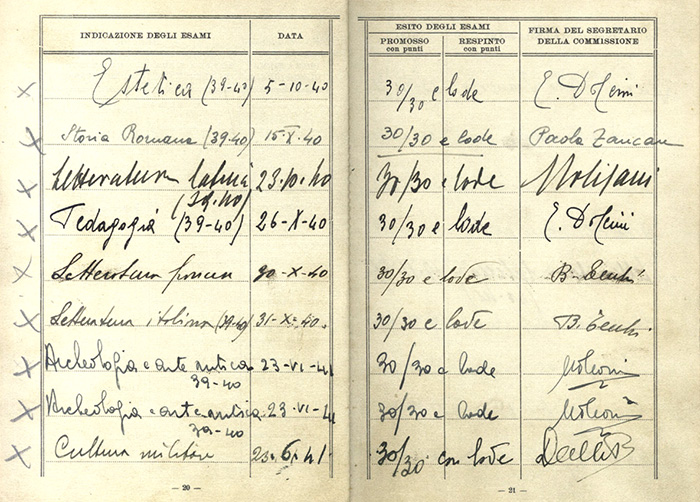 INDICAZIONE DEGLI ESAMI DATA ESITO DEGLI ESAMI FIRMA DEL SEGRETARIO DELLA COMMISSIONE
PROMOSSO con punti RESPINTO con punti
Estetica (39-40) 5-10-40 30/30 e lode
Storia Romana (39-40) 15.X.40 30/30 e lode Paola Zancan
Letteratura latina (39.40) 23.10.40 30/30 e lode
Pedagogia (39-40) 26-X-40 30/30 e lode
Letteratura 30-X-40 30/30 e lode B.
Letteratura italiana (39-40) 31-X-40. 30/30 e lode B.
Archeologia e arte antica 39-40 23-VI-41 30/30 e lode
Archeologia e arte antica 39-40 23-VI-41 30/30 e lode
Cultura militare 23.6.41 30/30 con lode
— 20 — — 21 —